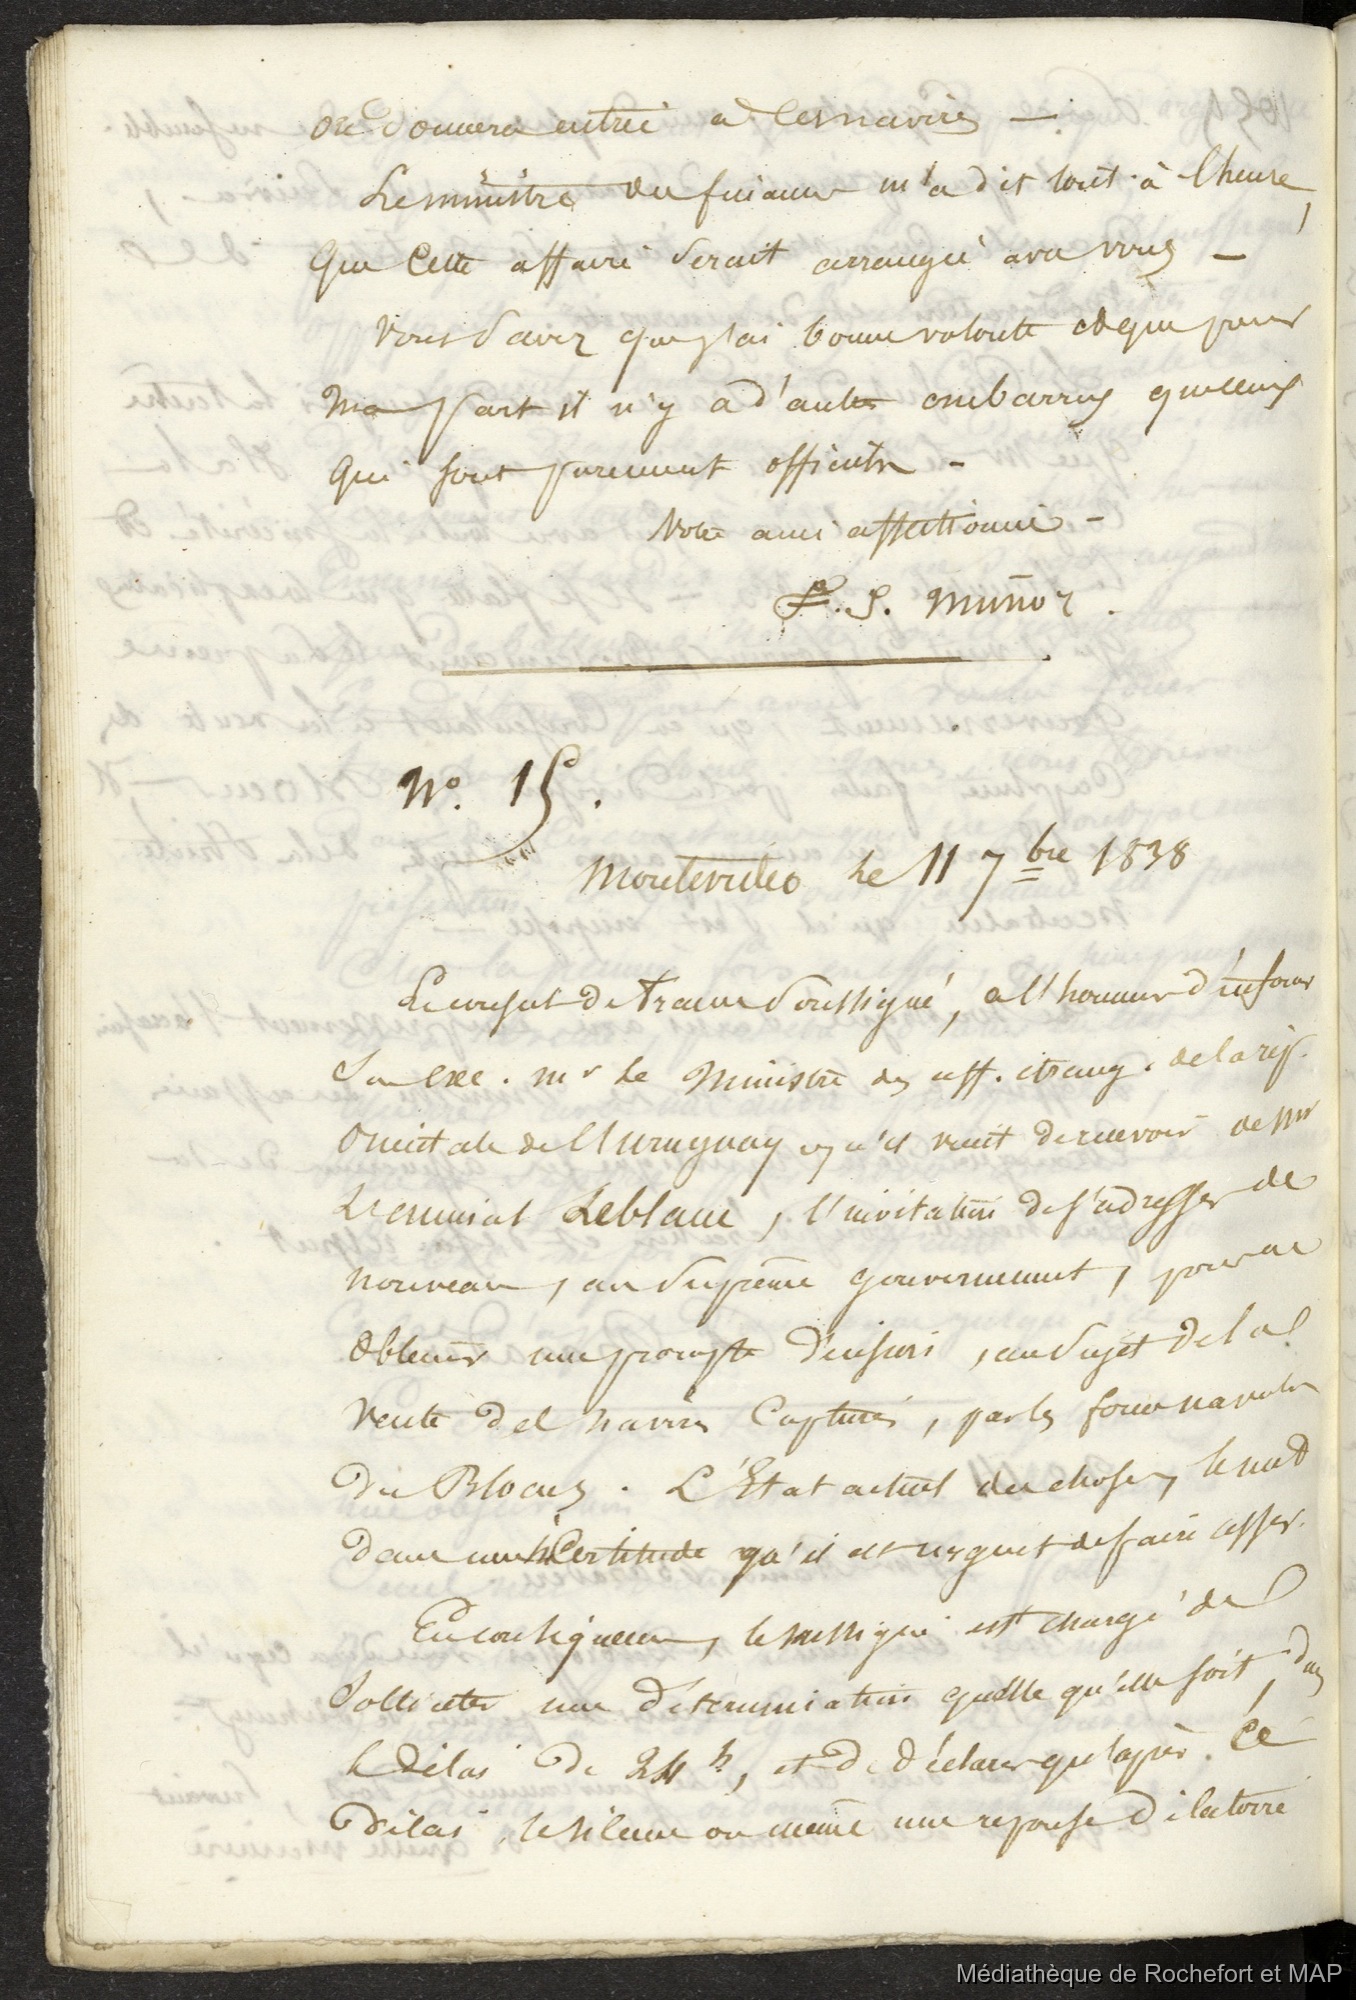 on donnera entrée a ces navires —
Le ministre des finances m'a dit tout à l'heure,
que cette affaire serait arrangée avec vous —
Vous savez que j'ai bonne volonté et que pour
ma part il n'y a d'autres embarras que ceux
qui sont purement officiels -
Votre ami affectionné -
F. J. Muñoz.
N.º 15.
Montevideo le 11 7bre 1838
Le consul de France soussigné, a l'honneur d'informer
Son Exc. mr le Ministre des aff. étrang. de la rép.
Orientale de l'Uruguay qu'il vient de recevoir de Mr
L'amiral Leblanc, l'invitation de s'adresser de
nouveau, au Suprême gouvernement, pour en
obtenir une prompte décision, au sujet de la
vente des navires capturés, par les forces navales
du Blocus. L'État actuel des choses, le met
dans une incertitude qu'il est urgent de faire cesser.
En conséquence, le soussigné est chargé de
solliciter une détermination quelle qu'elle soit, dans
le délai de 24 h, et de déclarer qu'après ce
délai, le silence ou même une réponse dilatoire
Médiathèque de Rochefort et MAP